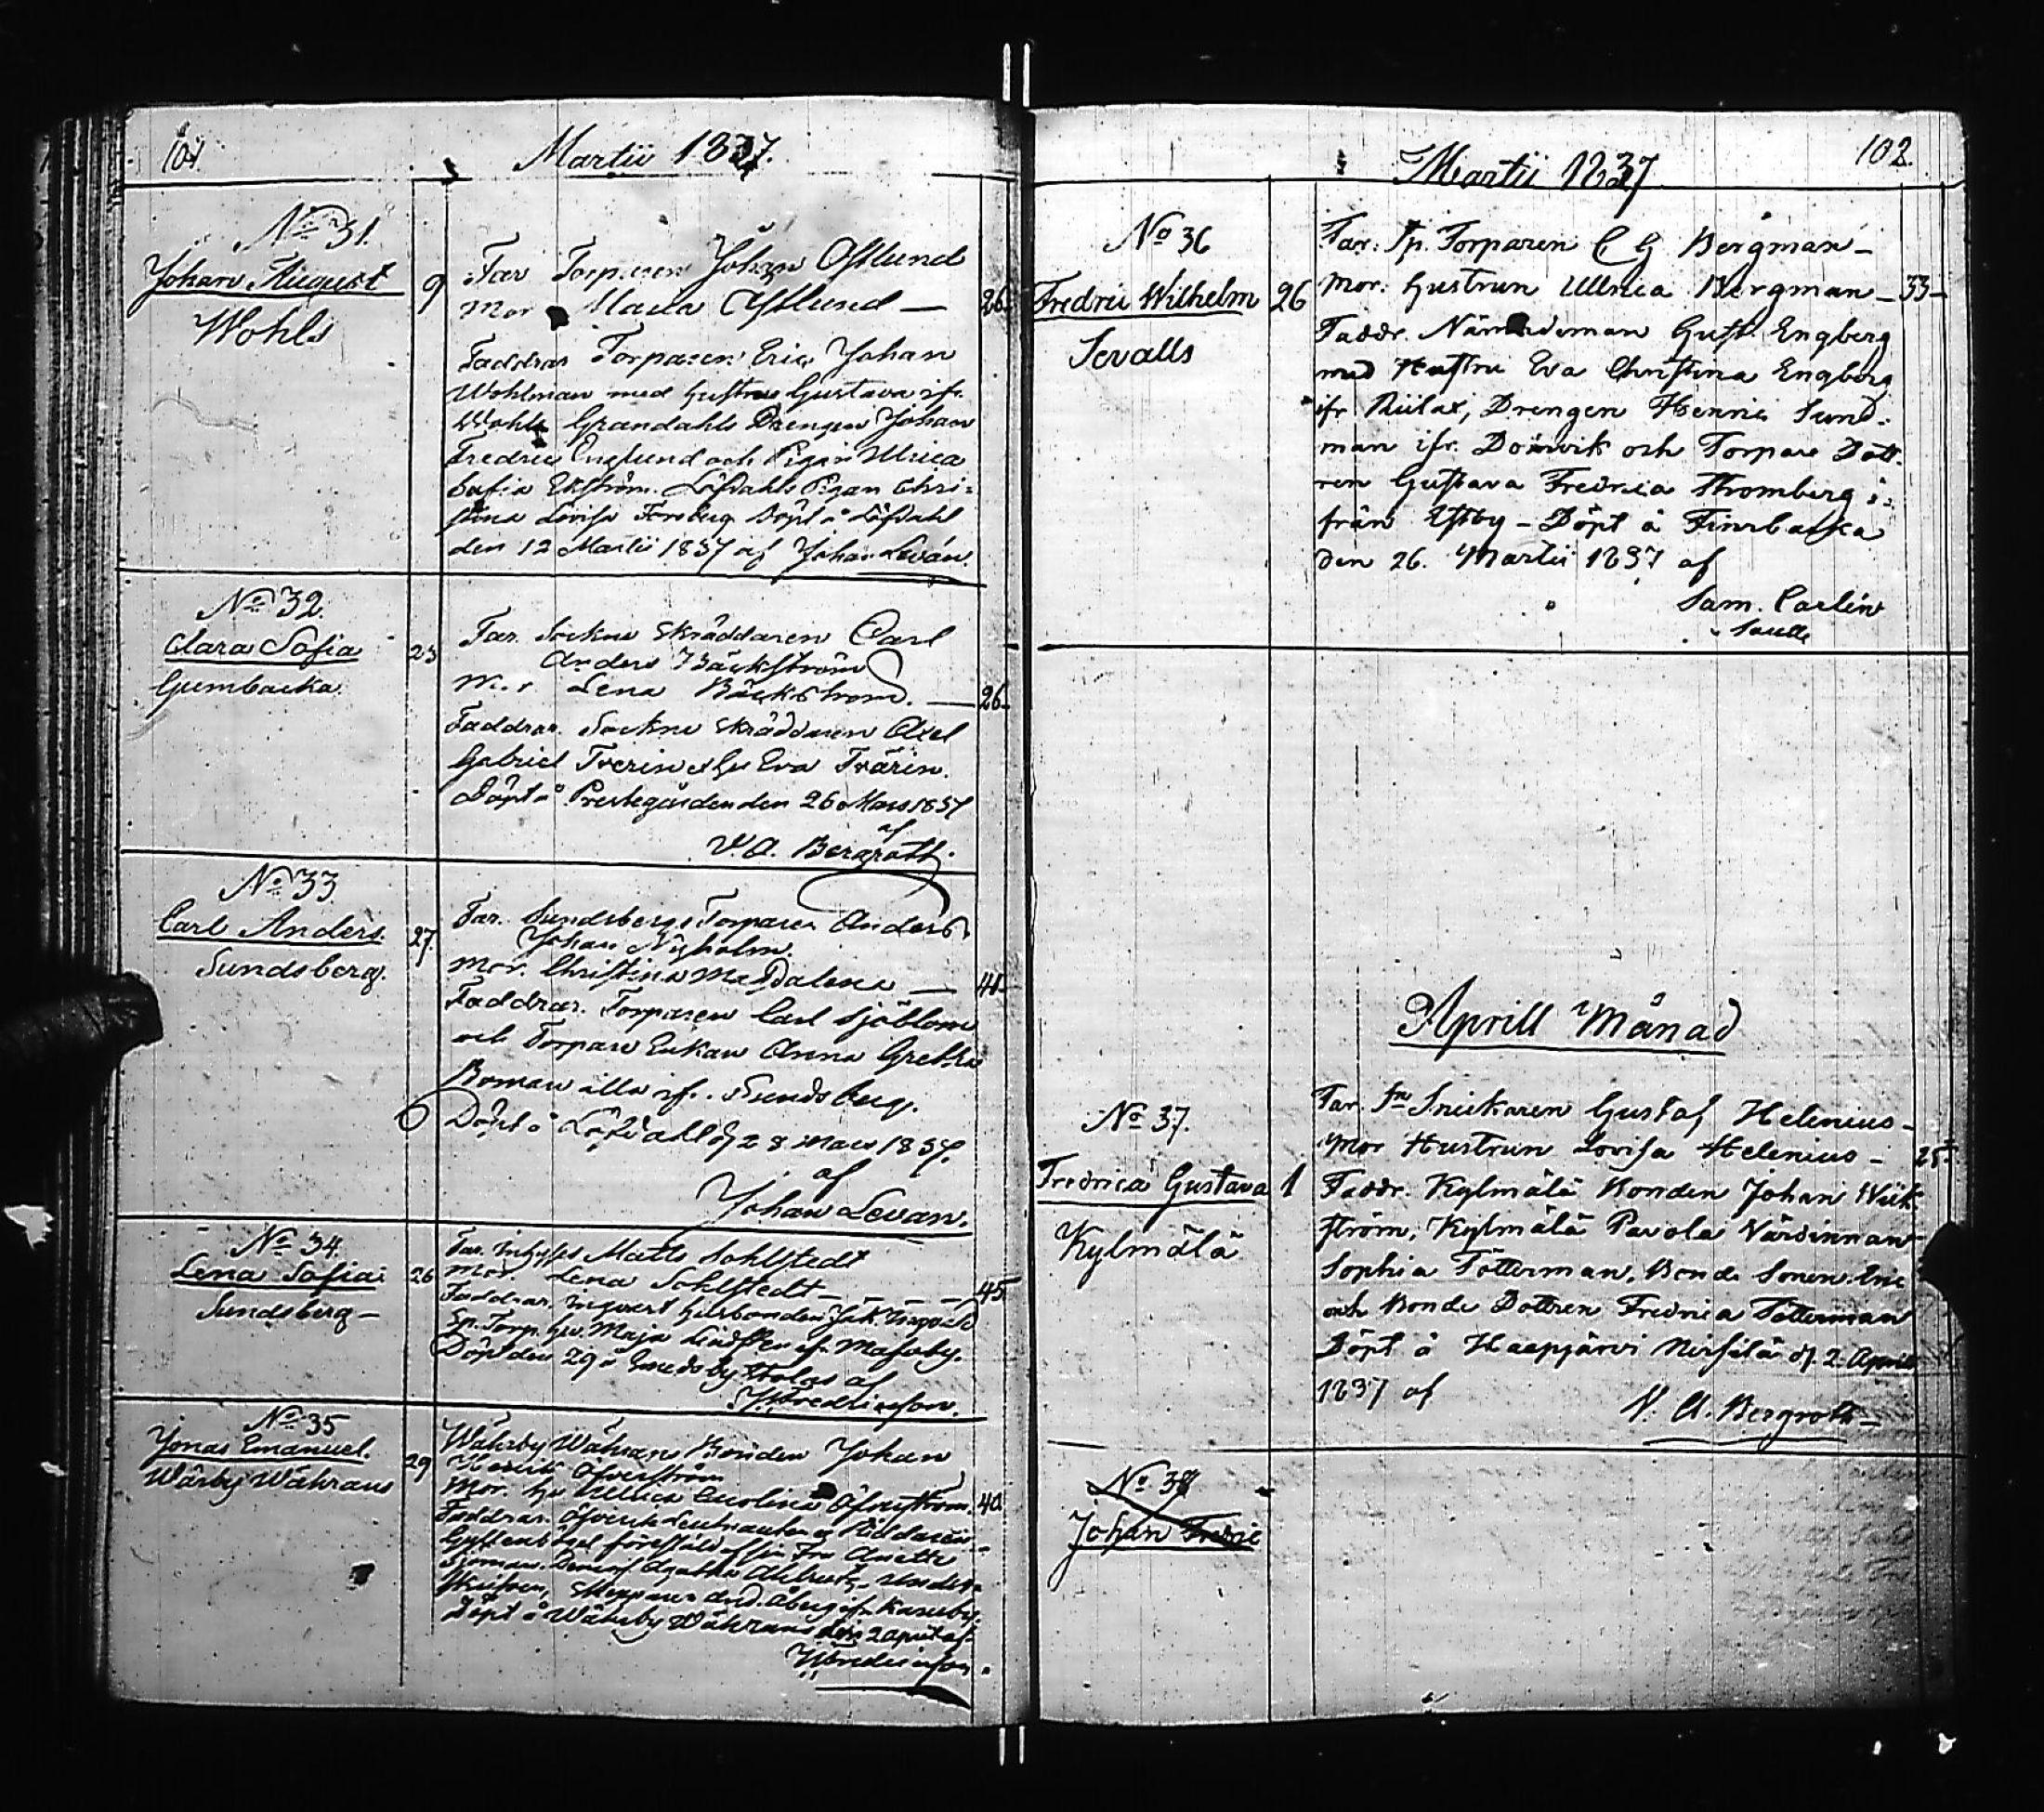 101.
Martii 1837.
No 31.
Johan August
Wohls
9
Far Torparen Johan Östlund
Mor Maria Östlund — 26
Faddrar Torparen Eric Johan
Wohlman med hustru Gustava ifr.
Wohls Grandahls Drengen Johan
Fredric Englund och Pigan Ulrica
Sofia Ekström. Löfdahls Pigan Chri-
stina Lovisa Forsberg Döpt å Löfdahl
den 12 Martii 1837 af Johan Levan.
No 32.
Clara Sofia
Gumbacka
23
Far. Sockne Skräddaren Carl
Anders Bäckström
Mor Lena Bäckström. — 26
Faddrar. Sockne Skräddaren Axel
Gabriel Frerin Hu Eva Frärin.
Döpt å Prestegården den 26 Mars 1837
af
V. A. Bergroth.
No 33
Carl Anders.
Sundsberg.
27.
Far. Sundsbergs Torparen Anders
Johan Nyholm.
Mor. Christina Magdalena — 41
Faddrar. Torparen Carl Sjöblom
och Torpare Enkan Anna Gretha
Boman alla ifr. Sundsberg.
Döpt å Löfdahl d 28 Mars 1837.
af
Johan Levan.
No 34.
Lena Sofia
Sundsberg —
26
Far. Inhyses Matts Sohlstedt
Mor. Lena Sohlstedt — 45
Faddrar. Husbonden Jak.
Sp. Torp. Hu. Maja ifr. Masaby.
Döpt den 29 å Smedsby Stolas af
No 35
Jonas Emanuel.
Wärby Währans
29
Währby Währans Bonden Johan
Henrik Öfverström
Mor. Hu Ulrica Carolina Öfverström. 40
Faddrar. Öfverste Leutnanten o Riddaren
föreställd af sin Fru Anette
Agatha
And. Åberg ifr. Kasaby.
Döpt å Währby Währans den 2 april af
102.
Martii 1837
No 36
Fredric Wilhelm
Sevalls
26
Far: Sp. Torparen C G Bergman —
Mor: Hustrun Ullrica Bergman — 33 —
Faddr. Nämndeman Gust. Engberg
med Hustru Eva Christina Engberg
ifr Riilax, Drengen Henric Sund-
man ifr. Dönsvik och Torpare Dott-
ren Gustava Fredrica Stromberg i-
från Estby — Döpt å Finnbacka
den 26. Martii 1837 af
Sam. Carlén
Aprill Månad
No 37.
Fredrica Gustava
Kylmälä
1
Far. Snickaren Gustaf Helenius —
Mor Hustrun Lovisa Helenius — 25
Faddr. Kylmälä Bonden Johan Wik-
ström, Kylmälä Pavola Värdinnan
Sophia Tötterman, Bonde Sonen Eric
och Bonde Dottren Fredrica Tötterman
Döpt å Haapjärvi Nissilä d. 2. April
1837 af
V. A. Bergroth —
No 38
Johan Fredric